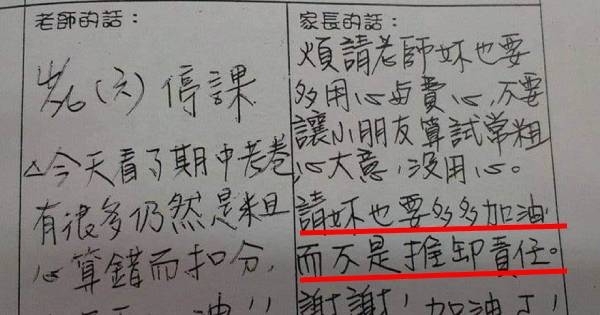 老師的話：
4/6(六)停課
△今天看了期中考卷
有很多仍然是粗
心算錯而扣分，
加油!!
家長的話：
煩請老師妳也要
多用心與費心，不要
讓小朋友算試常粗
心大意，沒用心。
請妳也要多多加油
而不是推卸責任。
謝謝！加油！！